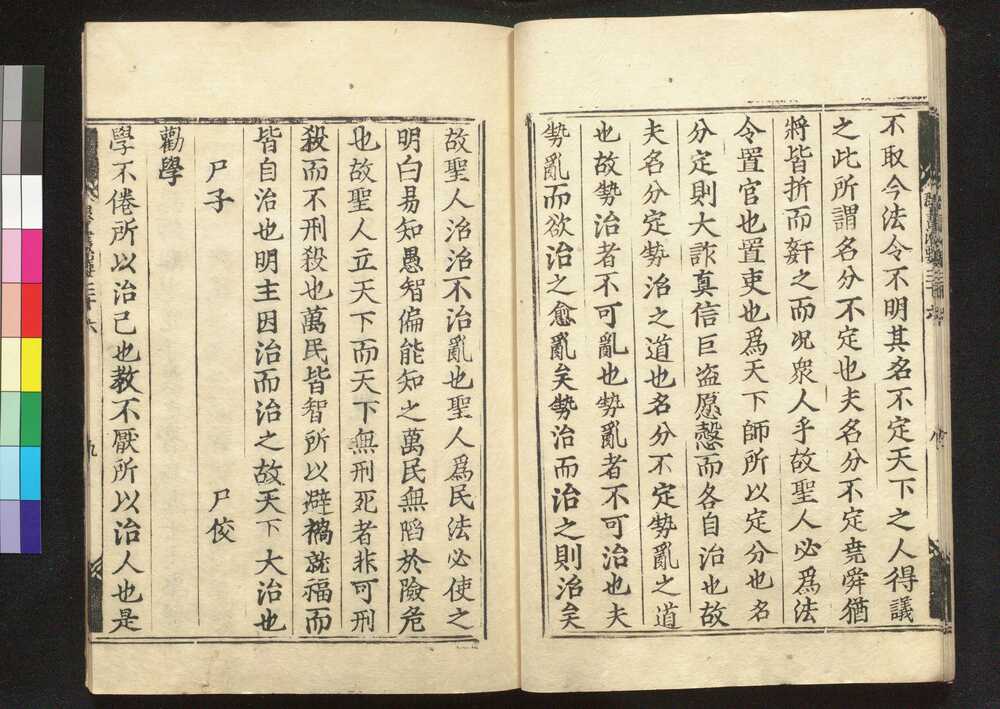 不取今法令不明其名不定天下之人得議
之此所謂名分不定也夫名分不定堯舜猶
將皆折而姧之而況衆人乎故聖人必爲法
令置官也置吏也爲天下師所以定分也名
分定則大詐真信巨盜愿愨而各自治也故
夫名分定勢治之道也名分不定勢亂之道
也故勢治者不可亂也勢亂者不可治也夫
勢亂而欲治之愈亂矣勢治而治之則治矣
故聖人治治不治亂也聖人爲民法必使之
明白易知愚智偏能知之萬民無陷於險危
也故聖人立天下而天下無刑死者非可刑
殺而不刑殺也萬民皆智所以避禍就福而
皆自治也明主因治而治之故天下大治也
尸子 尸佼
勸學
學不倦所以治己也教不厭所以治人也是